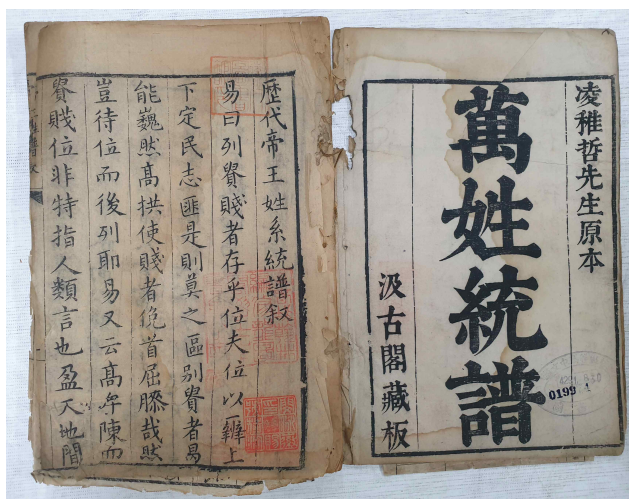 凌稚哲先生原本
萬姓統譜
汲古閣藏板
0199
歷代帝王姓系統譜叙
易曰列貴賤者存乎位夫位以辨上
下定民志匪是則莫之區別貴者曷
能巍然高拱使賤者俛首屈膝哉然
豈待位而後列耶易又云高卑陳而
貴賤位非特指人類言也盈天地間